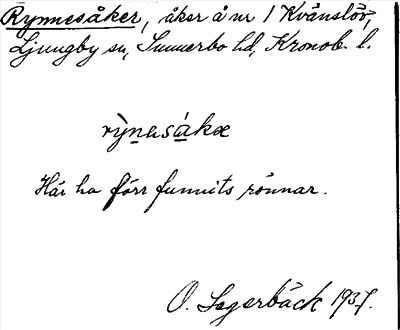 Rynnesåker, åker å nr 1 Kvänslöv,
Ljungby sn, Sunnerbo hd, Kronob. l.
rỳnesákæ
Här ha förr funnits rönnar.
O. Lagerbäck 1937.